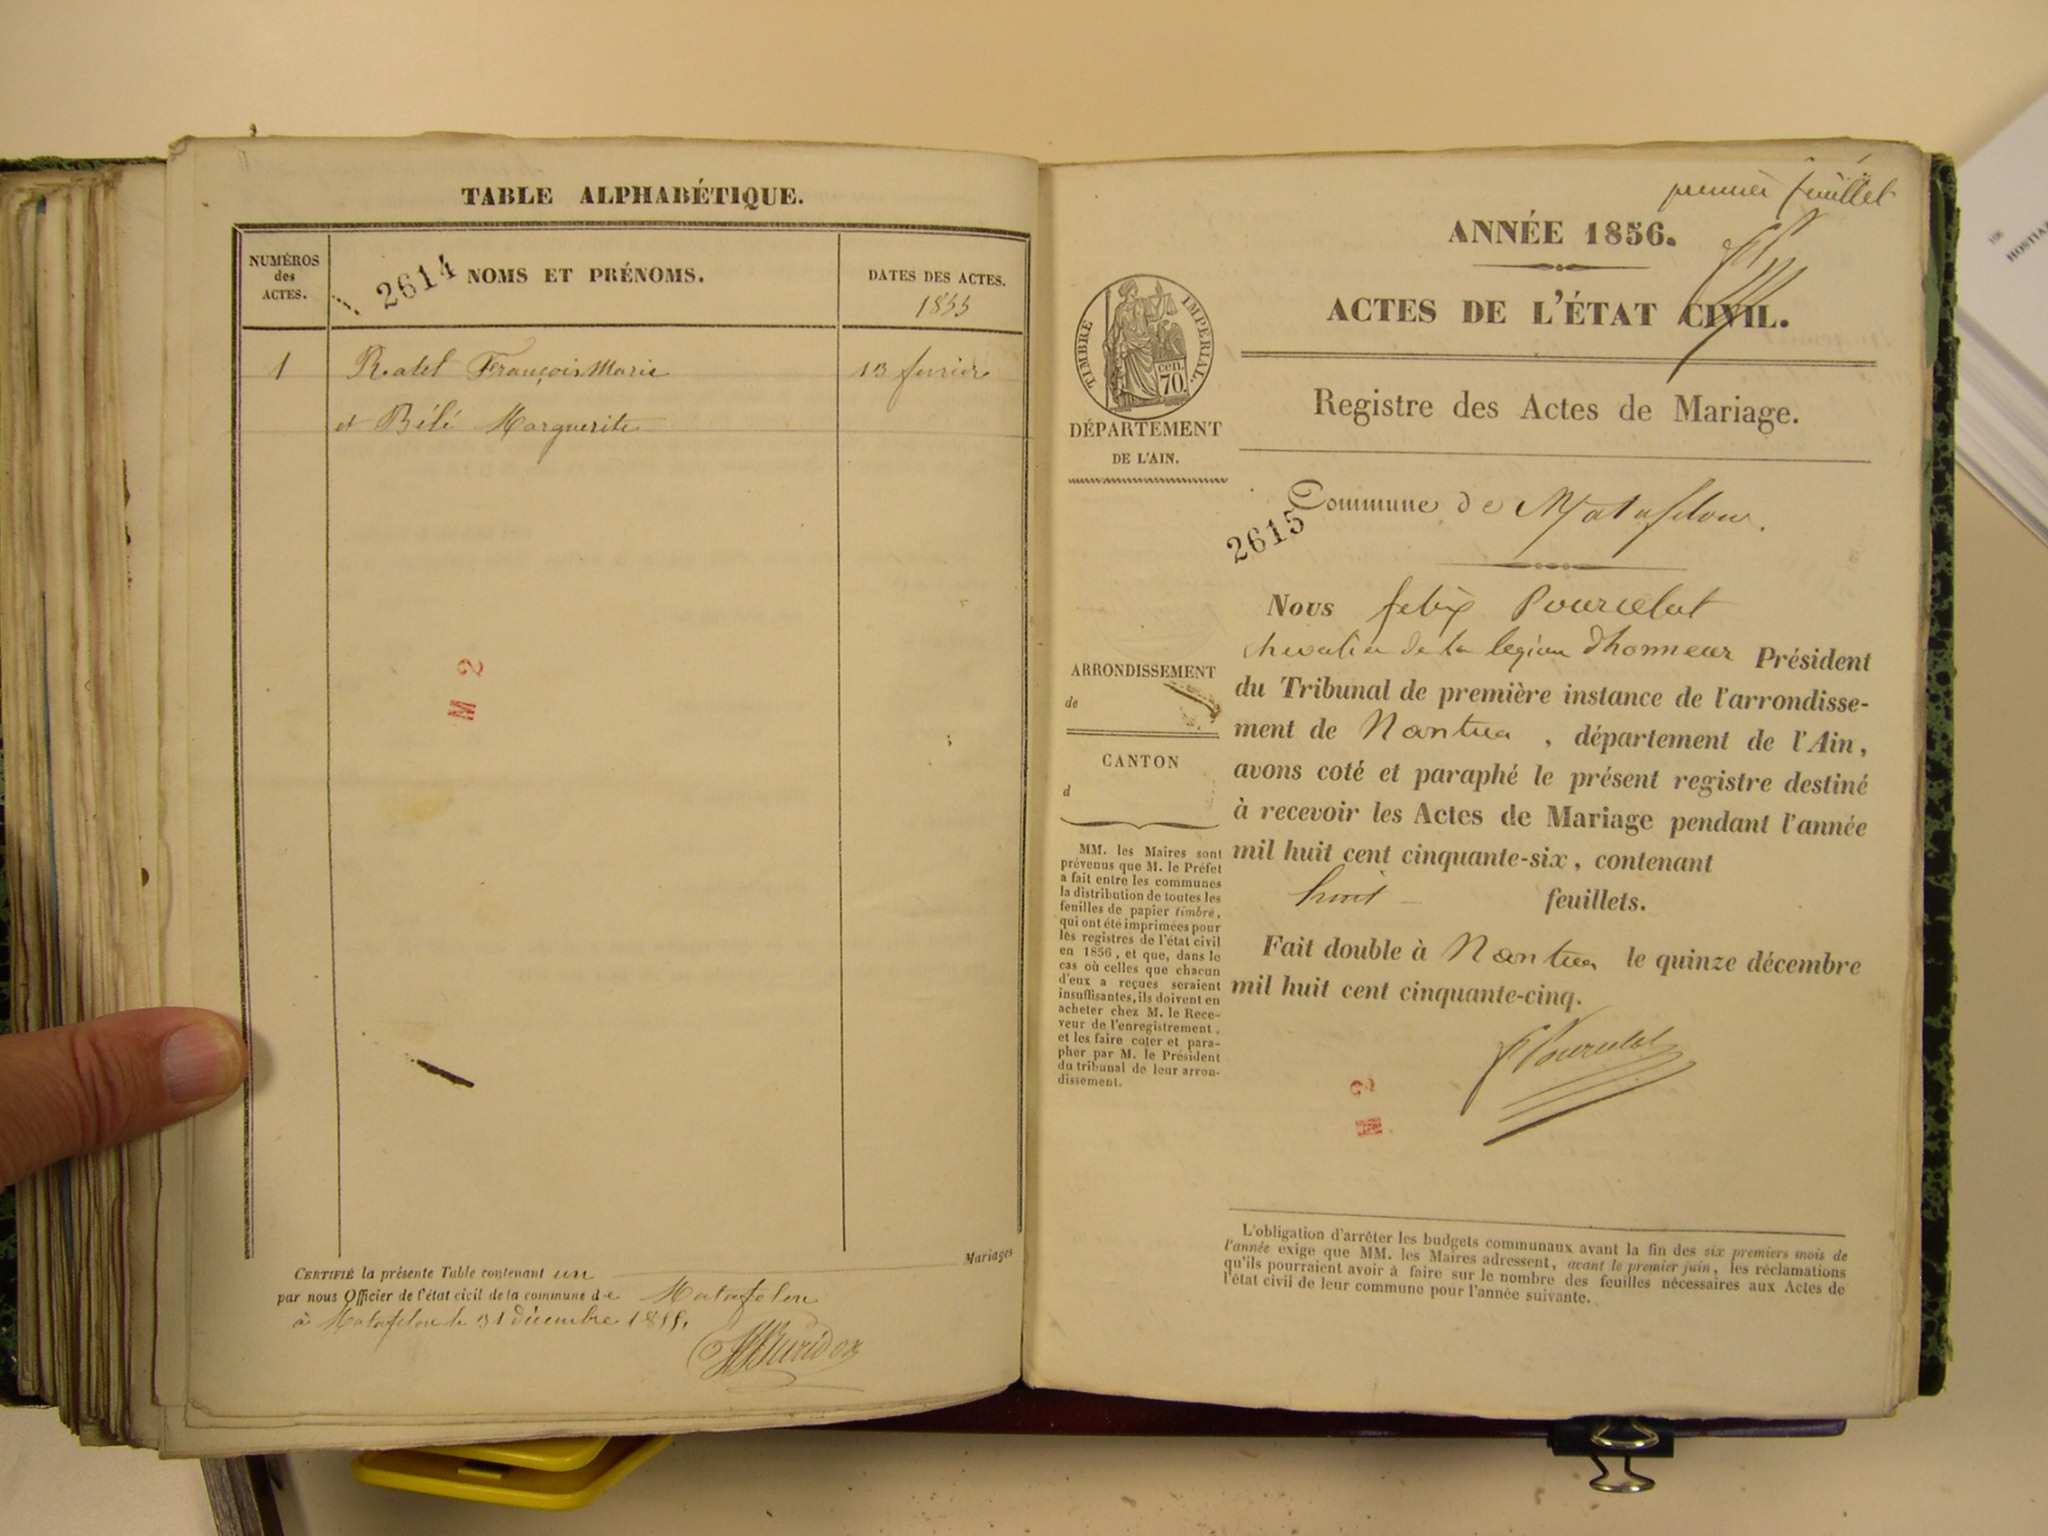 TABLE ALPHABÉTIQUE.
NUMÉROS
des
ACTES.
2614
NOMS ET PRÉNOMS.
DATES DES ACTES.
1855
1
Ratel François Marie
13 fevrier
et Bélé Marguerite
M 2
Mariages
CERTIFIÉ la présente Table contenant un
par nous Officier de l'état civil de la commune de Matafelon
à Matafelon le 31 décembre 1855.
premier feuillet
ANNÉE 1856.
ACTES DE L'ÉTAT CIVIL.
TIMBRE IMPERIAL.
cen.
70.
DÉPARTEMENT
DE L'AIN.
Registre des Actes de Mariage.
Commune de Matafelon.
2615
Nous felix Pourcelot
chevalier de la legion d'honneur Président
du Tribunal de première instance de l'arrondisse-
ment de Nantua, département de l'Ain,
avons coté et paraphé le présent registre destiné
à recevoir les Actes de Mariage pendant l'année
mil huit cent cinquante-six, contenant
huit feuillets.
Fait double à Nantua le quinze décembre
mil huit cent cinquante-cinq.
Pourcelot
M 2
ARRONDISSEMENT
de
CANTON
d
MM. les Maires sont
prévenus que M. le Préfet
a fait entre les communes
la distribution de toutes les
feuilles de papier timbré,
qui ont été imprimées pour
les registres de l'état civil
en 1856, et que, dans le
cas où celles que chacun
d'eux a reçues seraient
insuffisantes, ils doivent en
acheter chez M. le Rece-
veur de l'enregistrement,
et les faire coter et para-
pher par M. le Président
du tribunal de leur arron-
dissement.
L'obligation d'arrêter les budgets communaux avant la fin des six premiers mois de
l'année exige que MM. les Maires adressent, avant le premier juin, les réclamations
qu'ils pourraient avoir à faire sur le nombre des feuilles nécessaires aux Actes de
l'état civil de leur commune pour l'année suivante.